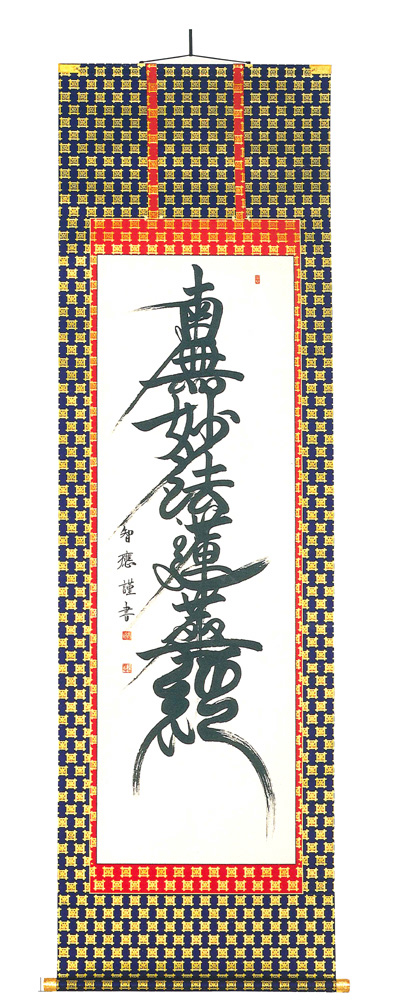 南無妙法蓮華経
智應謹書